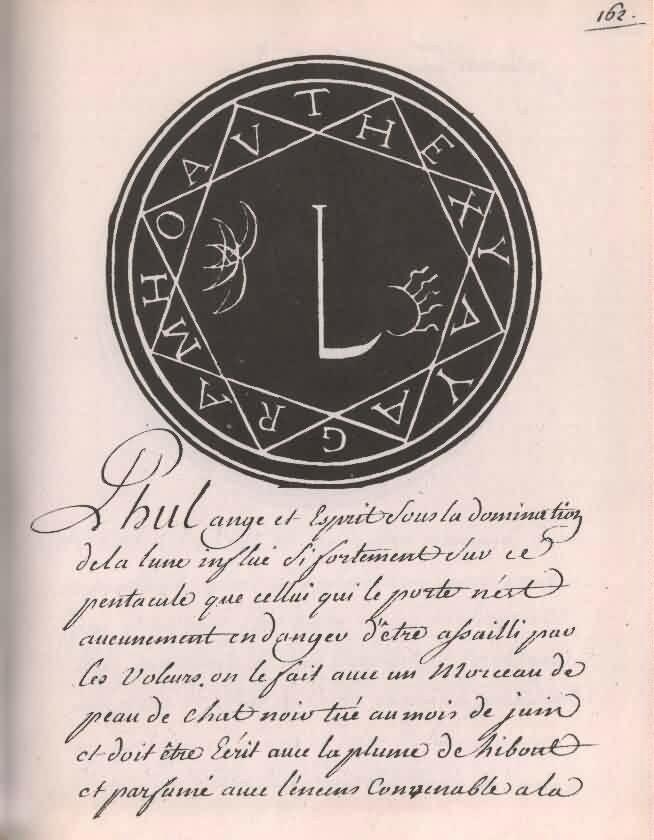 162.
T H E X Y A Y A G R A M H O A V
L
Phul ange et Esprit sous la domination
de la lune influë si fortement sur ce
pentacule que cellui qui le porte n'est
aucunement en danger d'être assailli par
les Voleurs, on le fait avec un Morceau de
peau de chat noir tué au mois de juin
et doit être Ecrit avec la plume de hibout
et parfumé avec l'encens Convenable a la